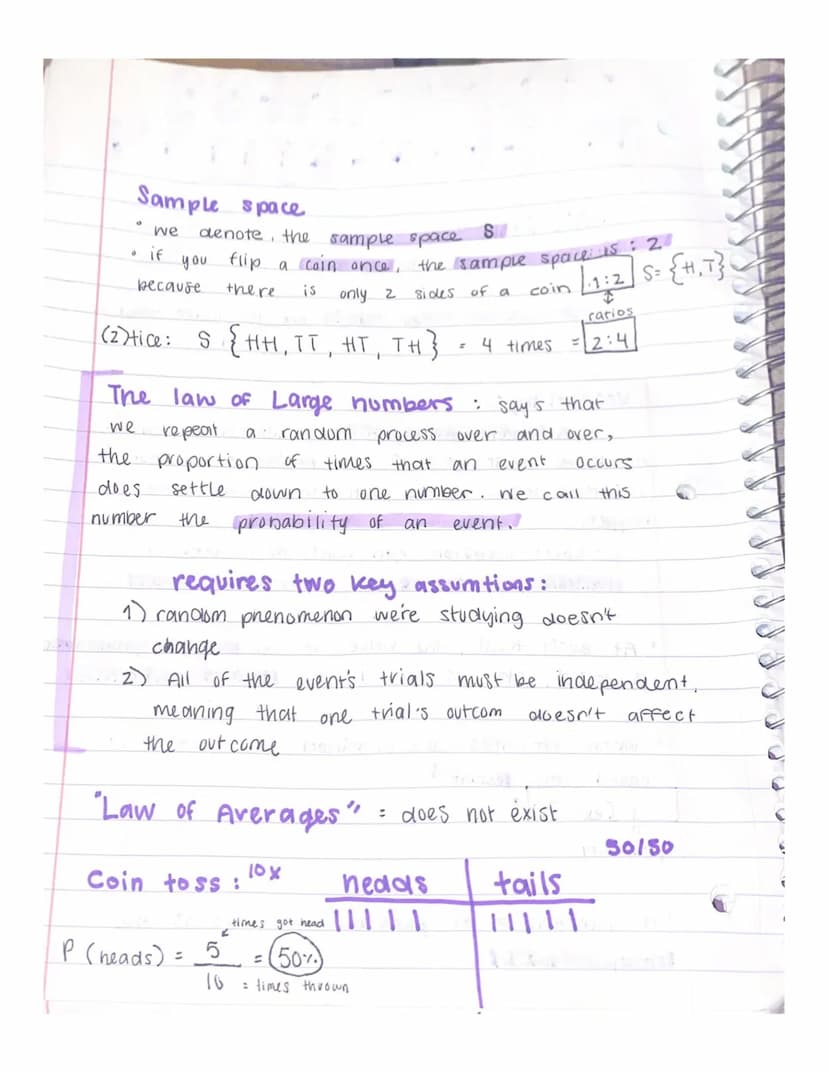 Sample space
• we denote, the sample space S
• if you flip a coin once, the sample space is : 2
because there is only 2 sides of a coin 1:2 S= {H,T}
ratios
(2)tice: S {HH, TT, HT, TH} = 4 times = 2:4
The law of Large numbers : says that
we repeat a random process over and over,
the proportion of times that an event occurs
does settle down to one number. We call this
number the probability of an event.
requires two key assumtions:
1) random phenomenon we're studying doesn't
change
2) All of the event's trials must be independent,
meaning that one trial's outcom doesn't affect
the outcome
"Law of Averages" = does not exist
50/50
Coin toss: 10x heads tails
times got head | | | | | | | | | |
P (heads) = 5 = 50%
10 = times thrown